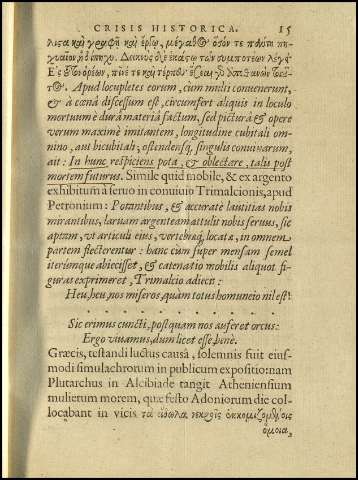 CRISIS HISTORICA. 15
λιςα καὶ γραφῇ καὶ ἔργῳ, μέγαθος ὅσόν τε πάντῃ πη-
χυαῖον ἢ δίπηχυ. Δεικνὺς δὲ ἑκάςῳ τῶν συμποτέων λέγει·
Ἐς τοῦτον ὁρέων, πῖνέ τε καὶ τέρπευ· ἔσεαι γὰρ ἀποθανὼν
τος. Apud locupletes eorum, cùm simul conuenerunt,
& à cœnâ discessum est, circumfert aliquis in loculo
mortuum è dura materiâ factum, sed picturâ & opere
verum maximè imitantem, longitudine cubitali om-
nino, aut bicubitali, ostendensq́, singulis conuiuarum,
ait: In hunc respiciens pota, & oblectare, talis post
mortem futurus. Simile quid mobile, & ex argento
exhibitum à seruo in conuiuio Trimalcionis, apud
Petronium: Potantibus, & accuratè lautitias nobis
mirantibus, laruam argenteam attulit nobis seruus, sic
aptam, vt articuli eius, vertebræq́, locatæ, in omnem
partem flecterentur: hanc cùm super mensam semel
iterúmque abiecisset, & catenatio mobilis aliquot fi-
guras exprimeret, Trimalcio adiecit:
Heu, heu nos miseros, quàm totus homuncio nil est!
. . . . . . . . . . . .
Sic erimus cuncti, postquam nos auferet orcus:
Ergo viuamus, dum licet esse bene.
Græcis, testandi luctus causâ, solemnis fuit eius-
modi simulachrorum in publicum expositio: nam
Plutarchus in Alcibiade tangit Atheniensium
mulierum morem, quæ festo Adoniorum die col-
locabant in vicis τὰ εἴδωλα νεκροῖς ἐκκομιζομένοις
ὅμοια,